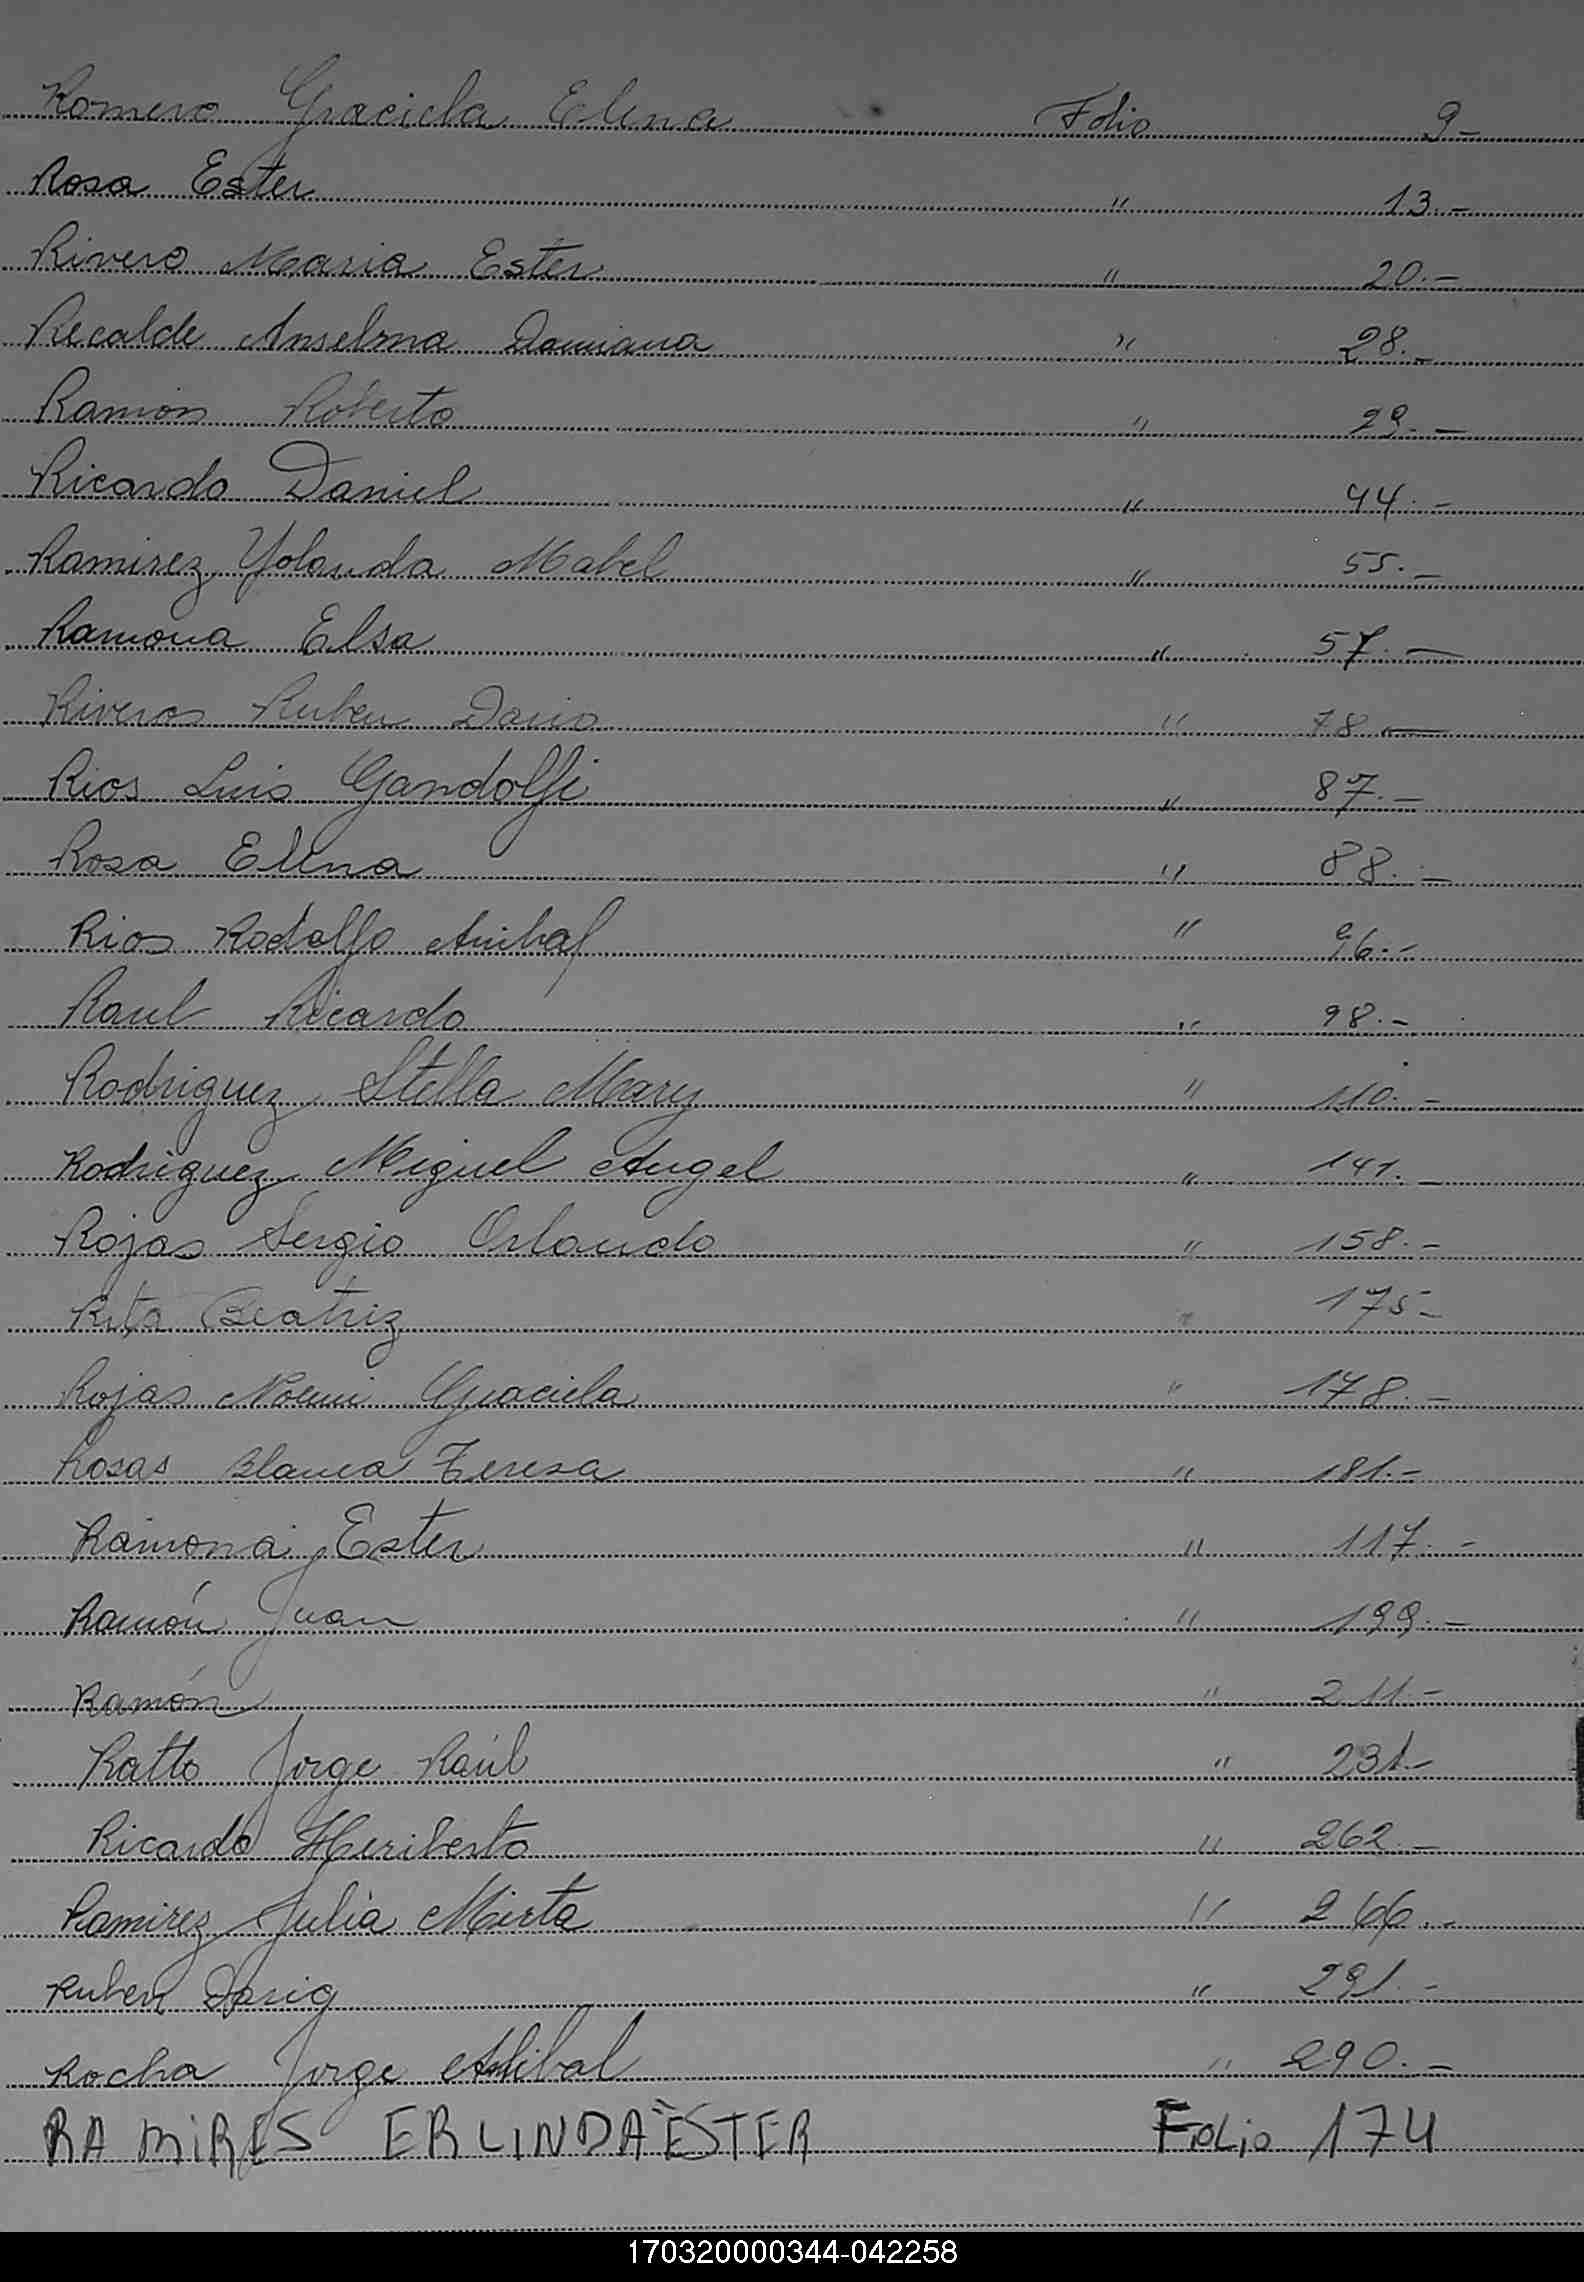 Romero Graciela Elena Folio 9-
Rosa Ester " 13.-
Rivero Maria Ester " 20.-
Recalde Anselma Damiana " 28.-
Ramon Roberto " 29.-
Ricardo Daniel " 44.-
Ramirez Yolanda Mabel " 55.-
Ramona Elsa " 57.-
Riveros Ruben Dario " 78-
Rios Luis Gandolfi " 87.-
Rosa Elena " 88.-
Rios Rodolfo Anibal " 96.-
Raul Ricardo " 98.-
Rodriguez Stella Mary " 110.-
Rodriguez Miguel Angel " 141.-
Rojas Sergio Orlando " 158.-
Rita Beatriz " 175-
Rojas Noemi Graciela " 178.-
Rosas Blanca Teresa " 181.-
Ramona Ester " 117.-
Ramón Juan " 199.-
Ramón " 211.-
Ratto Jorge Raúl " 231.-
Ricardo Heriberto " 262.-
Ramirez Julia Mirta " 266.-
Ruben Dario " 291.-
Rocha Jorge Anibal " 290.-
RAMIRES ERLINDA ESTER Folio 174
170320000344-042258